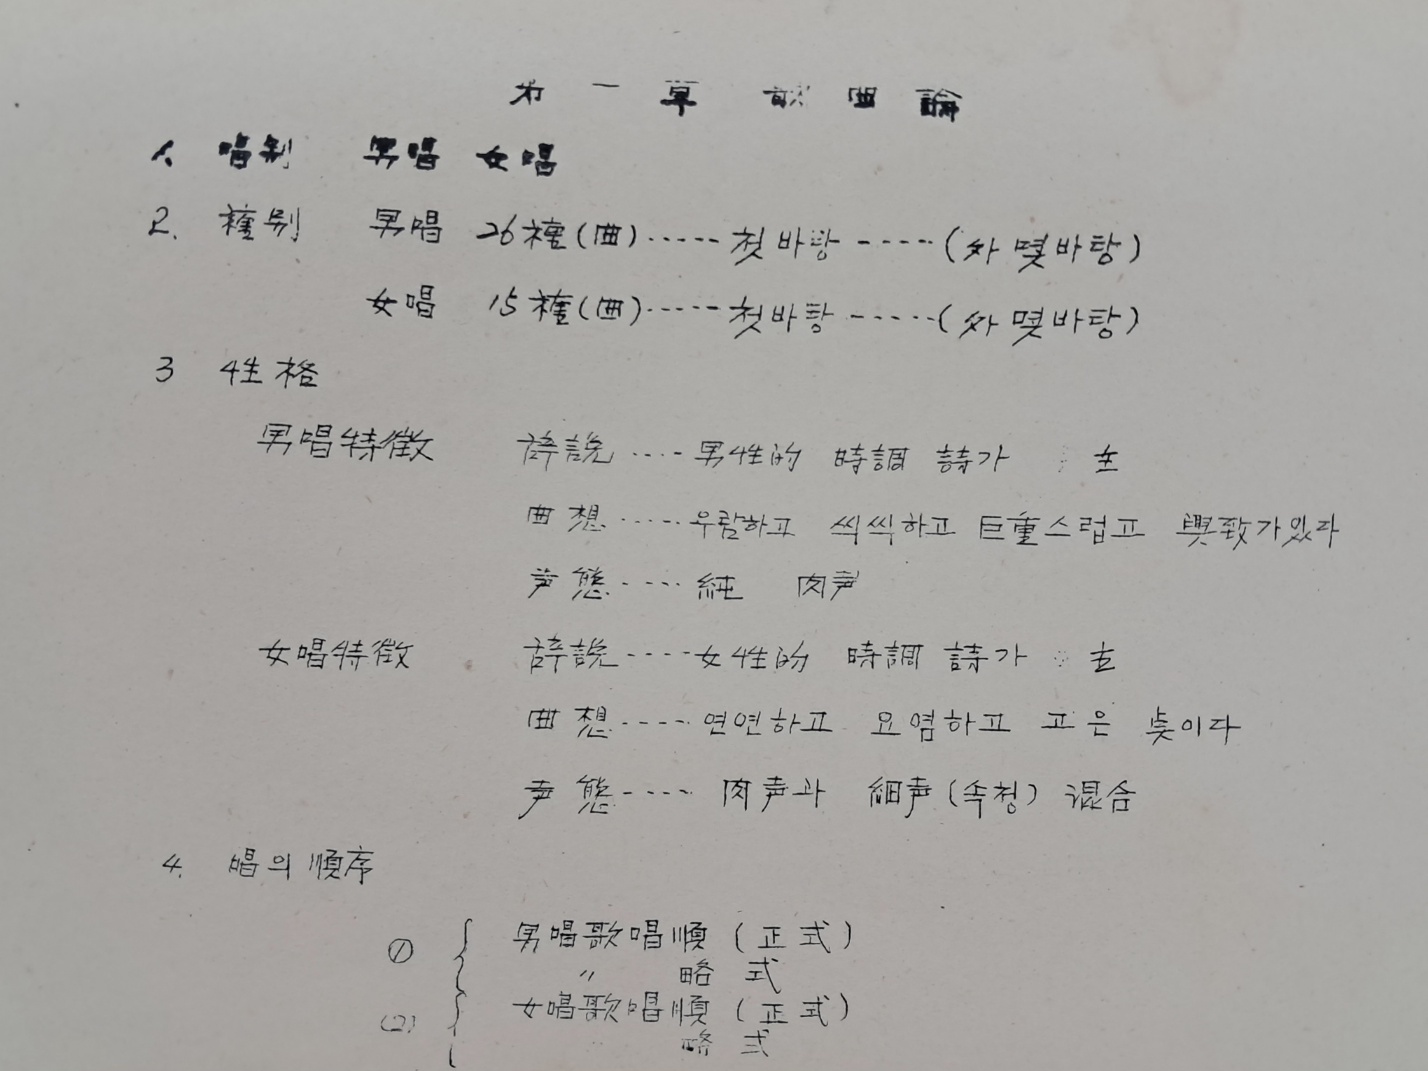 第一章 歌曲論
1. 唱別 男唱 女唱
2. 種別 男唱 26種(曲)·····첫바탕·····(外 몇바탕)
女唱 15種(曲)·····첫바탕·····(外 몇바탕)
3 性格
男唱特徵 辞說····男性的 時調 詩가 主
曲想·····우람하고 씩씩하고 巨重스럽고 興致가있다
声態····純 肉声
女唱特徵 辞說····女性的 時調 詩가 主
曲想····연연하고 요염하고 고은 멋이다
声態····肉声과 細声(속청) 混合
4. 唱의 順序
① 男唱歌唱順(正式)
〃 略式
(2) 女唱歌唱順(正式)
〃 略式